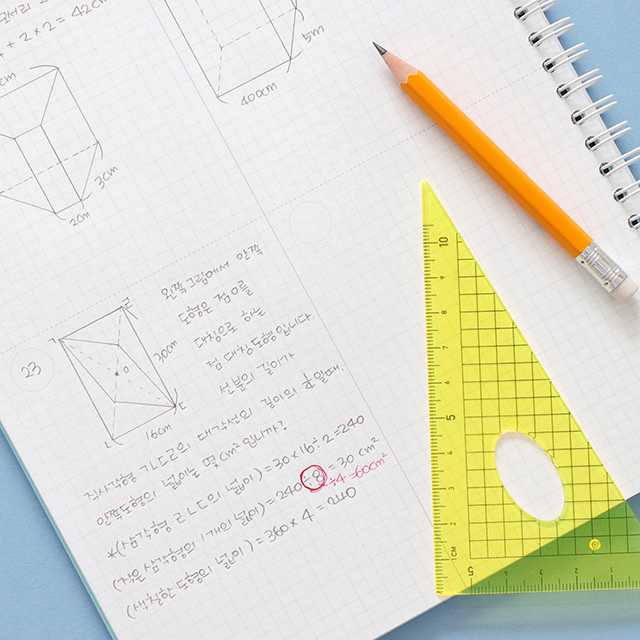 + 2 × 2 = 42cm
cm
3cm
2cm
5m
400cm
23
ㄱ
ㄹ
ㄴ
ㄷ
o
30cm
16cm
왼쪽 그림에서 안쪽
도형은 점 o를
대칭으로 하는
점대칭도형입니다.
선분의 길이가
직사각형 ㄱㄴㄷㄹ의 대각선의 길이의 일때,
안쪽도형의 넓이는 몇 cm² 입니까?
*(삼각형 ㄹㄴㄷ의 넓이) = 30×16÷2=240
(작은 삼각형의 1개의 넓이) = 240÷8 = 30 cm²
÷4=60cm²
(색칠한 도형의 넓이) = 360×4=240
10
5
2
1CM
5
3
2
1